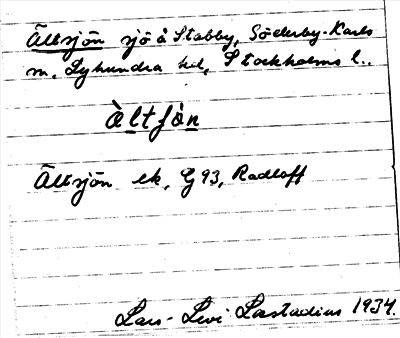 Ältsjön sjö å Stabby, Söderby-Karls
m. Lyhundra hd, Stockholms l..
Àltfàn
Ältsjön ek, G 93, Radloff
Lars-Levi Læstadius 1934.